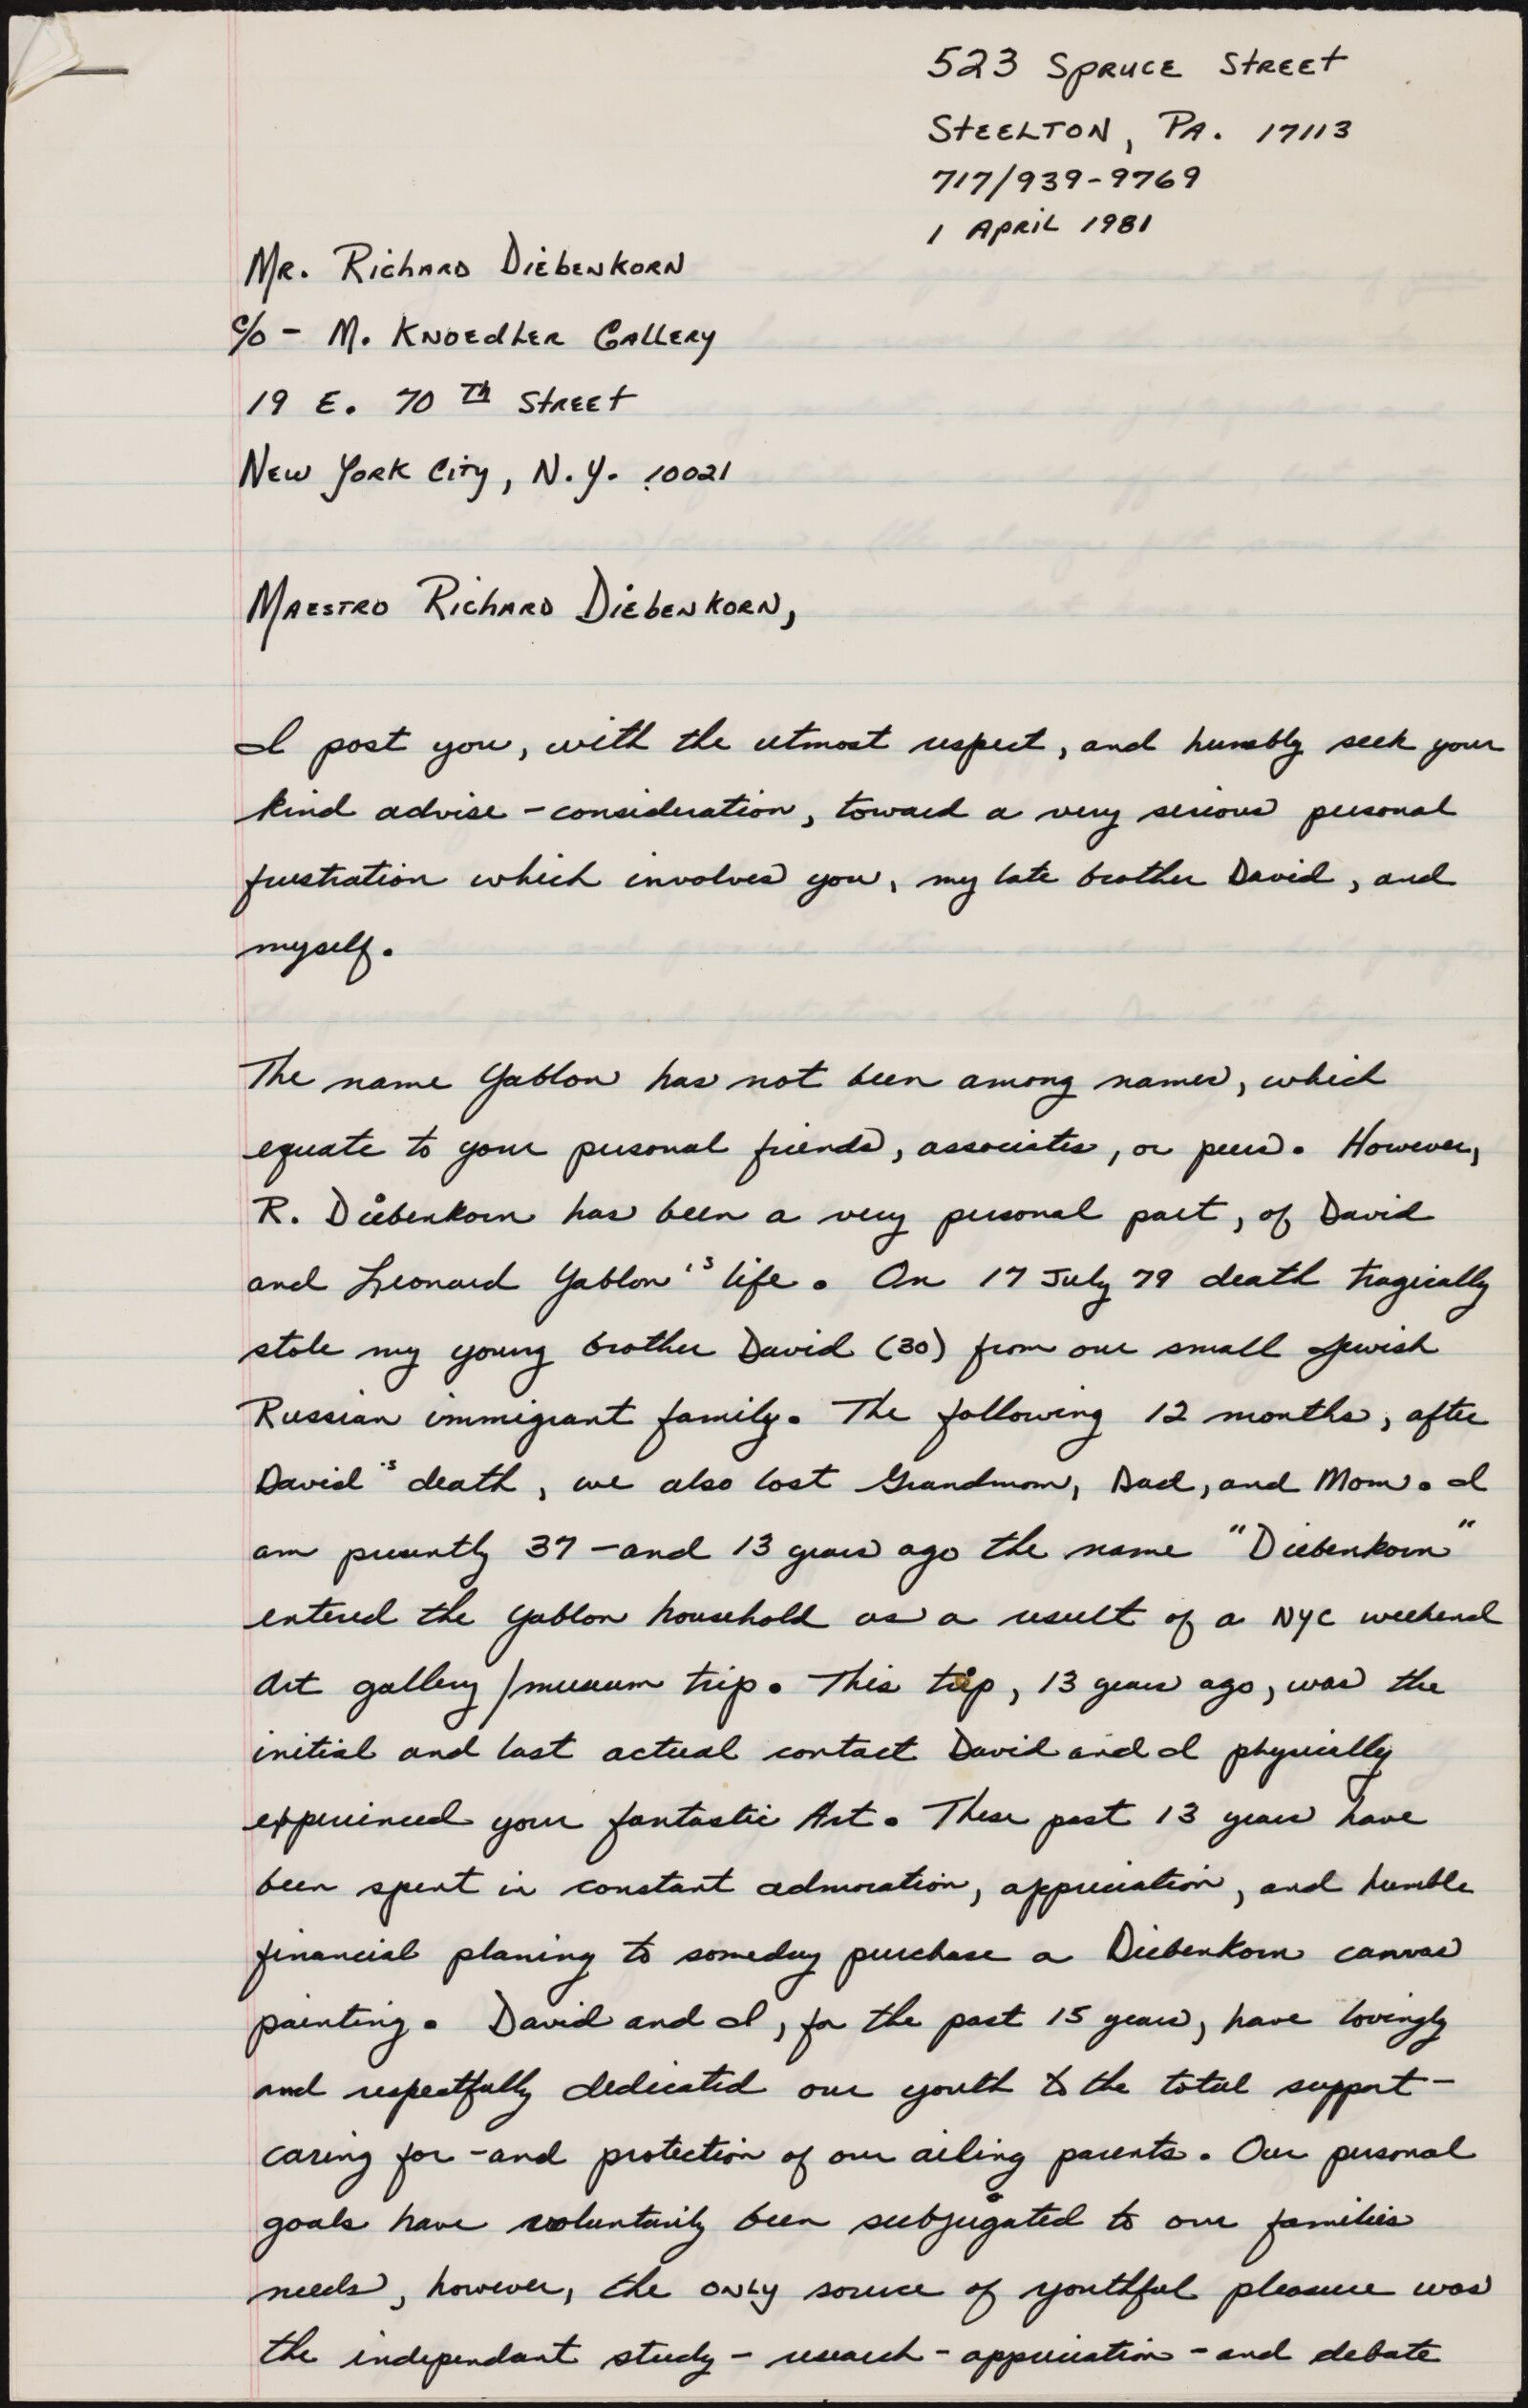 523 Spruce Street
Steelton, Pa. 17113
717/939-9769
1 April 1981
Mr. Richard Diebenkorn
c/o - M. Knoedler Gallery
19 E. 70 th Street
New York City, N.Y. 10021
Maestro Richard Diebenkorn,
I post you, with the utmost respect, and humbly seek your
kind advise - consideration, toward a very serious personal
frustration which involves you, my late brother David, and
myself.
The name Yablon has not been among names, which
equate to your personal friends, associates, or peers. However,
R. Diebenkorn has been a very personal part, of David
and Leonard Yablon's life. On 17 July 79 death tragically
stole my young brother David (30) from our small Jewish
Russian immigrant family. The following 12 months, after
David's death, we also lost Grandmom, Dad, and Mom. I
am presently 37 - and 13 years ago the name "Diebenkorn"
entered the Yablon household as a result of a NYC weekend
Art gallery/museum trip. This trip, 13 years ago, was the
initial and last actual contact David and I physically
experienced your fantastic Art. These past 13 years have
been spent in constant admoration, appreciation, and humble
financial planing to someday purchase a Diebenkorn canvas
painting. David and I, for the past 15 years, have lovingly
and respectfully dedicated our youth to the total support -
caring for - and protection of our ailing parents. Our personal
goals have voluntarily been subjugated to our families
needs, however, the only source of youthful pleasure was
the independant study - research - appreciation - and debate